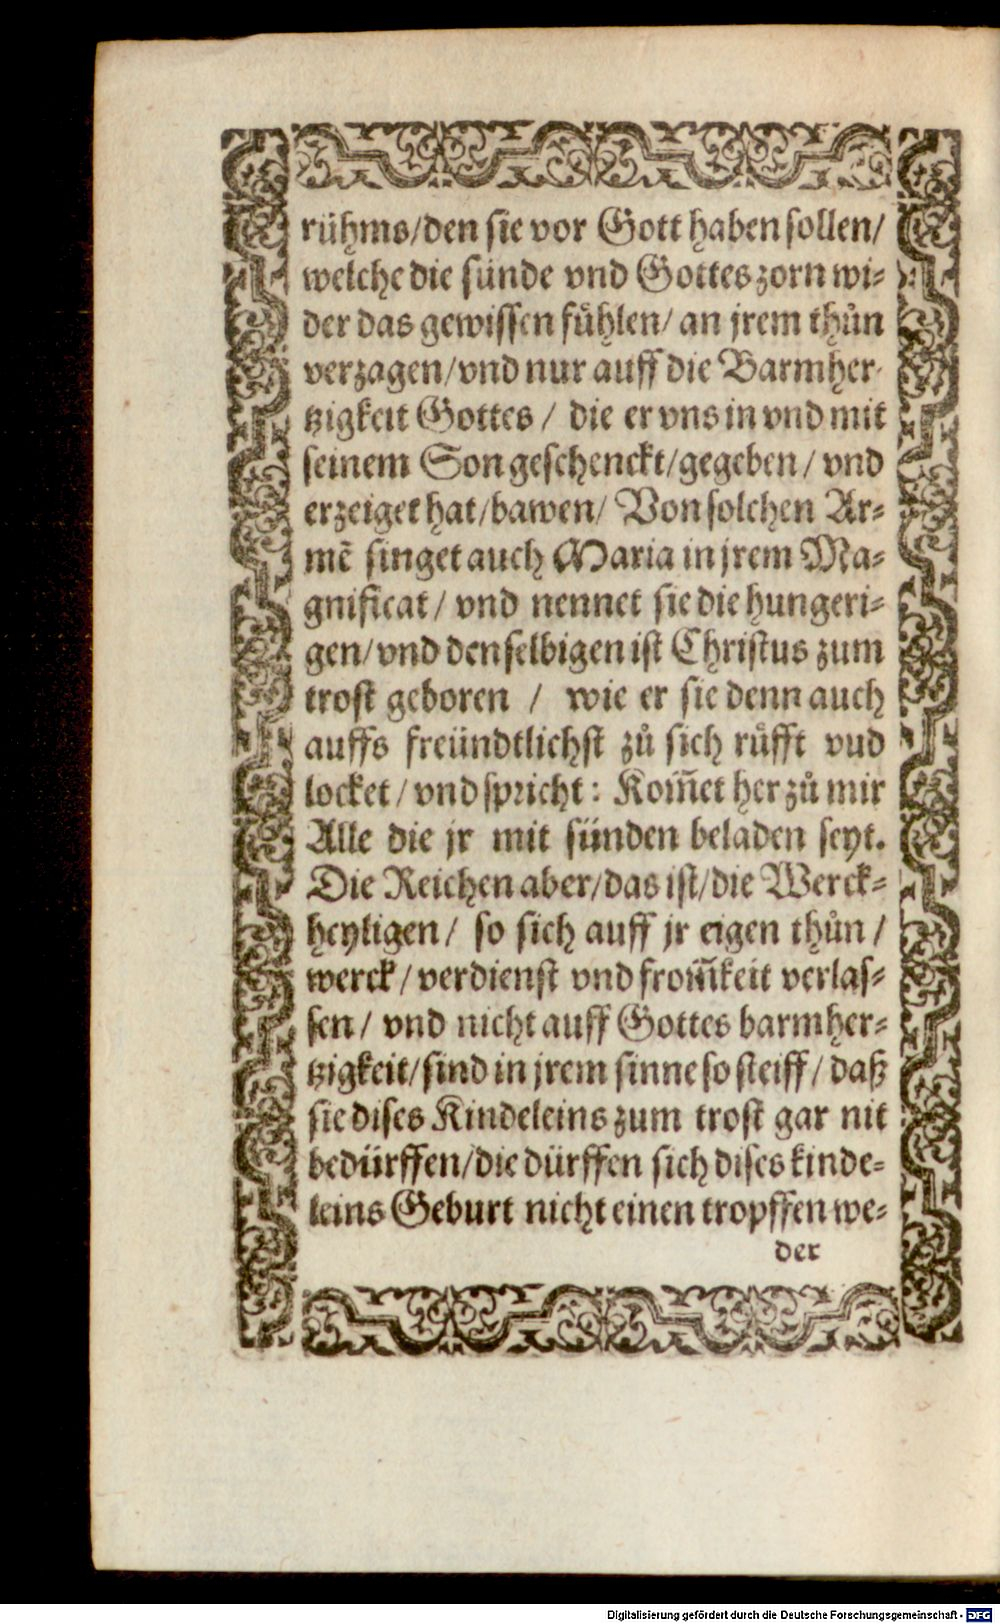 rühms/den sie vor Gott haben sollen/
welche die sünde vnd Gottes zorn wi-
der das gewissen fühlen/ an jrem thůn
verzagen/vnd nur auff die Barmher-
tzigkeit Gottes / die er vns in vnd mit
seinem Son geschenckt/gegeben/ vnd
erzeiget hat/bawen/ Von solchen Ar-
mẽ singet auch Maria in jrem Ma-
gnificat / vnd nennet sie die hungeri-
gen/vnd denselbigen ist Christus zum
trost geboren / wie er sie denn auch
auffs freündtlichst zů sich růfft vud
locket / vnd spricht: Kom̃et her zů mir
Alle die jr mit sünden beladen seyt.
Die Reichen aber/das ist/die Werck-
heyligen/ so sich auff jr eigen thůn /
werck / verdienst vnd from̃keit verlas-
sen/ vnd nicht auff Gottes barmher-
tzigkeit/sind in jrem sinne so steiff/ daß
sie dises Kindeleins zum trost gar nit
bedürffen/die dürffen sich dises kinde-
leins Geburt nicht einen tropffen we-
der
Digitalisierung gefördert durch die Deutsche Forschungsgemeinschaft - DFG